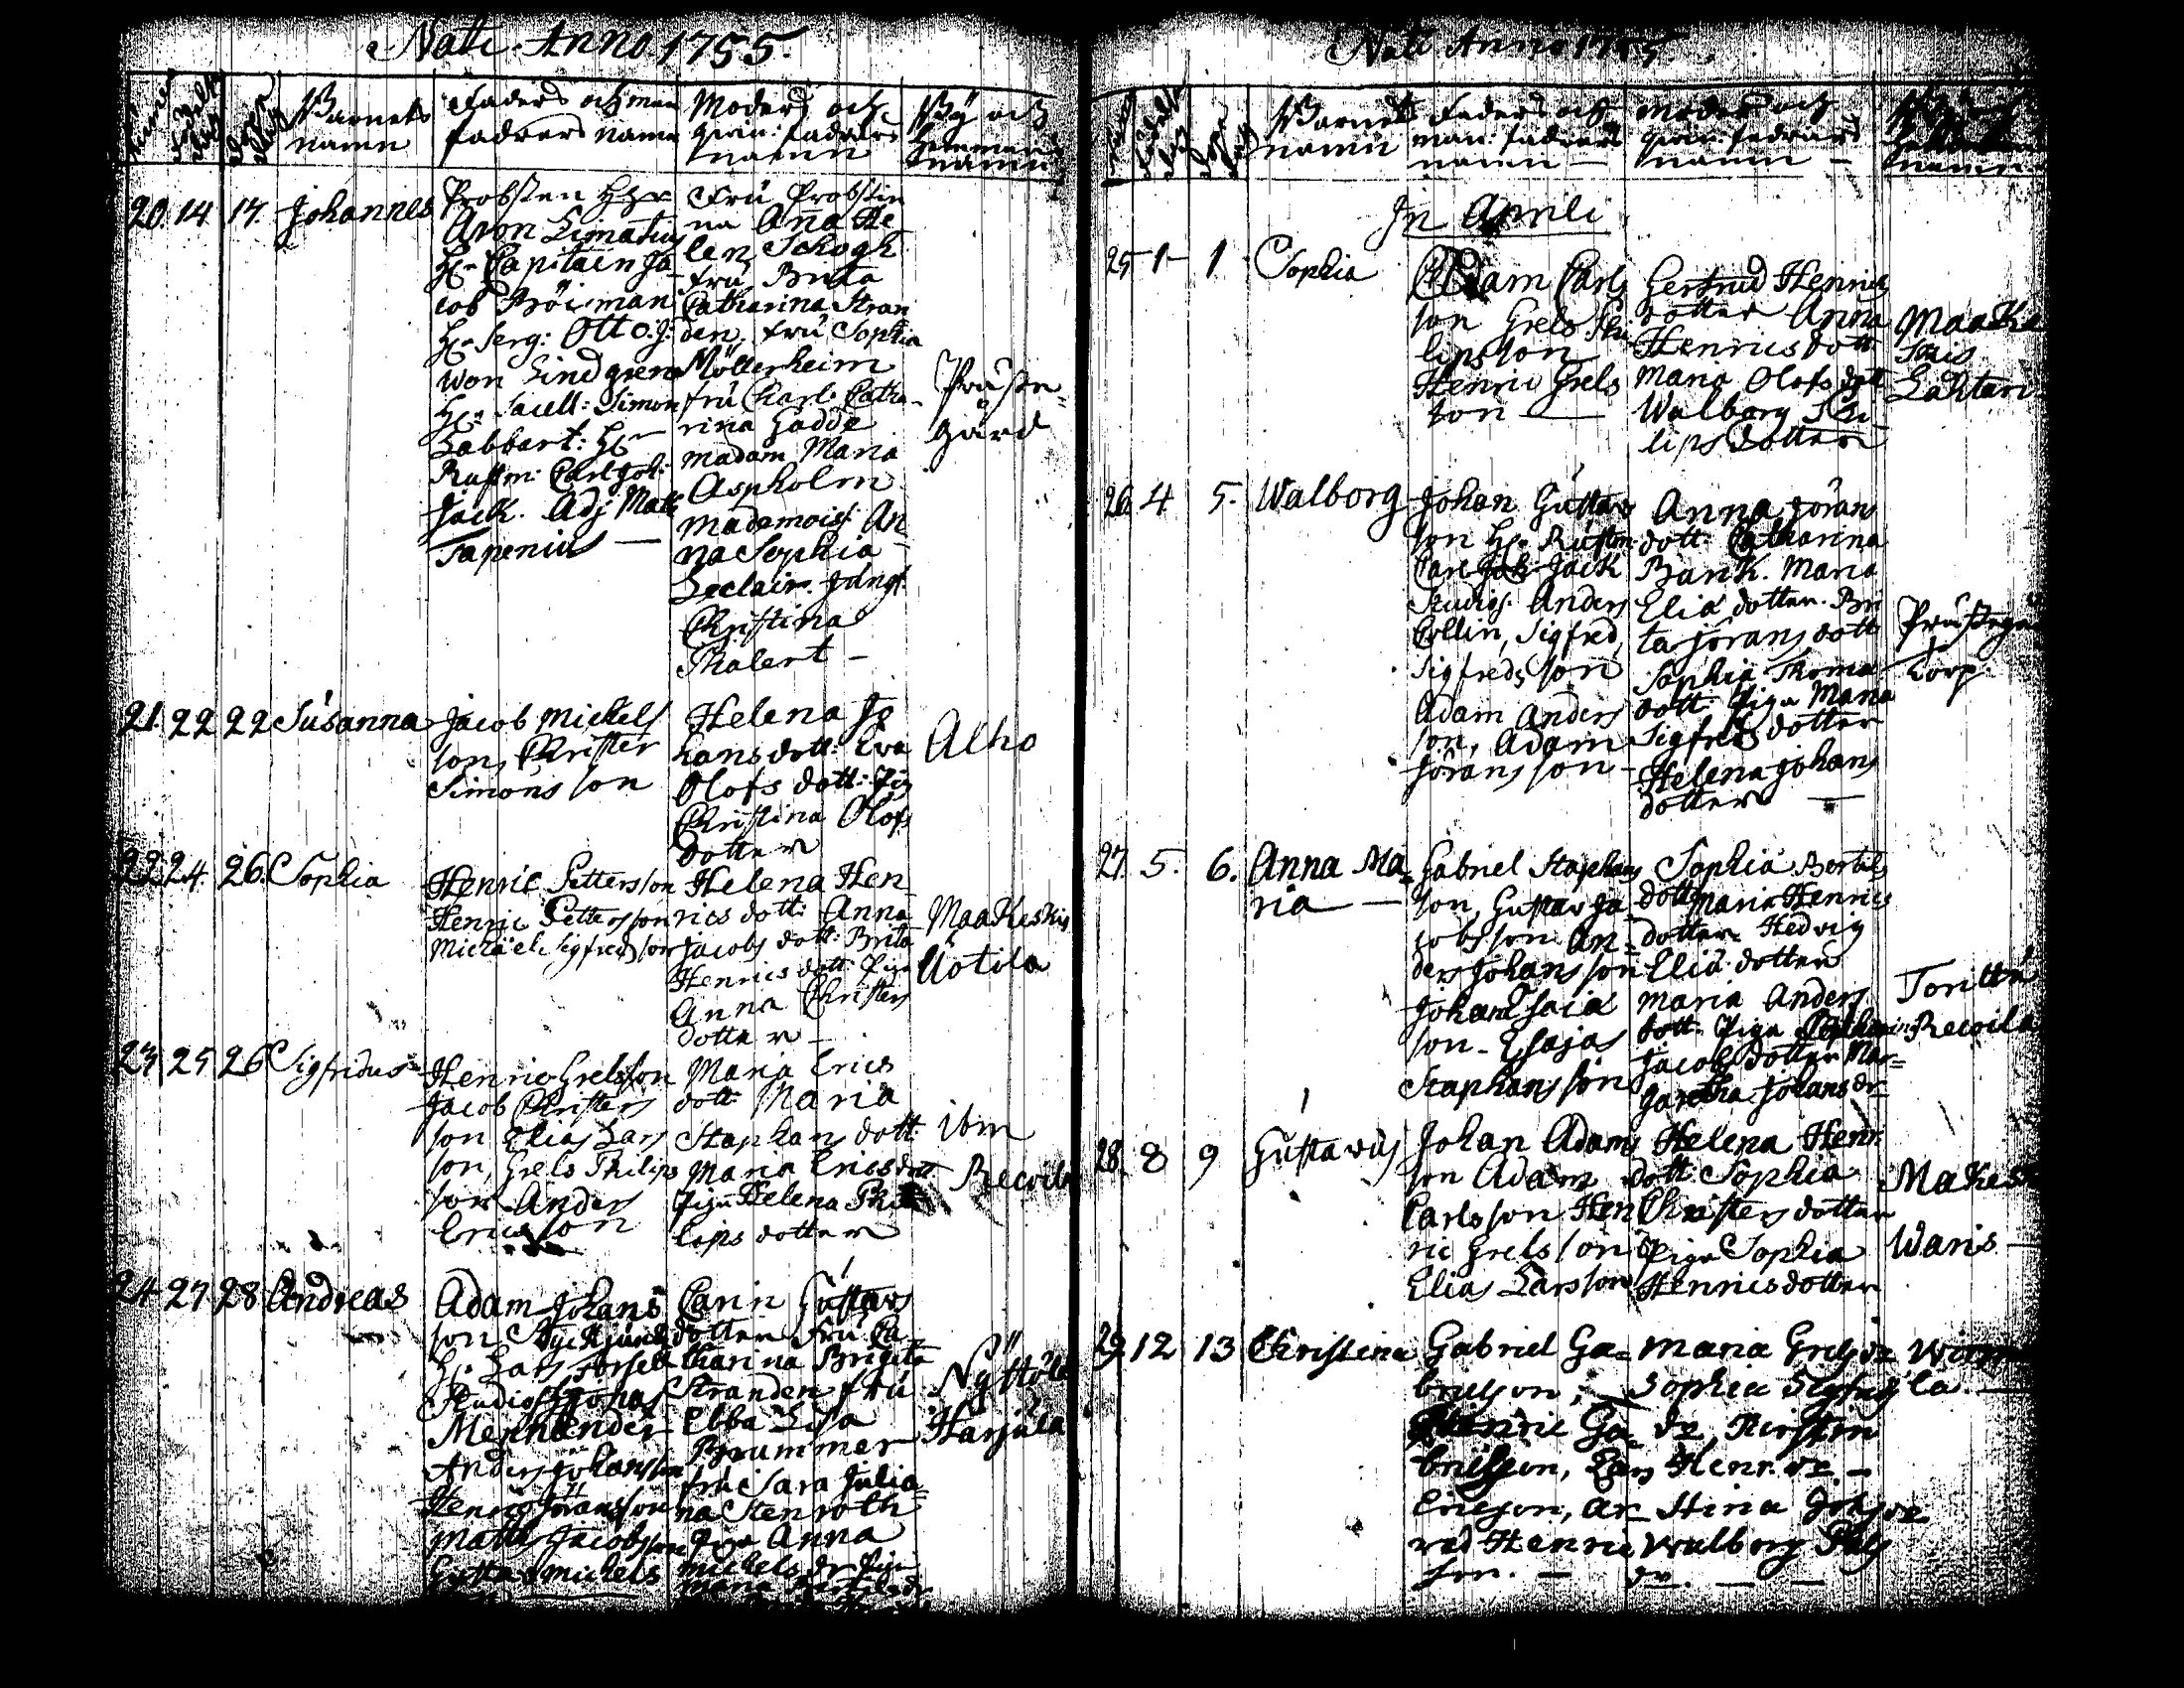 Nati Anno 1755.
Barnets
namn
Faders och man
fadrars namn
Moders och
qwin: fadrars
namn
By och
hemmans
namn
20. 14 17. Johannes
Probsten H:r
Aron Limatius
H:r Capitain Ja
cob Böisman
H:r Serg: Otto. J:
won Lindgren
H:r Sacell: Simon
Labbart: H:r
Rustm: Carl Joh:
Jack. Adj Matt
Tapenius —
Fru Probstin
na Ana He
len Schogh
fru Brita
Catharina Stran
den, fru Sophia
Möllerheim
fru Charl: Catha-
rina Gadde
madam Maria
Aspholm
mademois: An
na Sophia
Leclair. Jungf.
Christina
Thalert —
Präste-
gård
21. 22 22 Susanna
Jacob Mickels
son, Christer
Simons son
Helena Jo
hans dott: Eva
Olofs dott: Pig
Christina Olofs
dotter
Alho
22 24. 26. Sophia
Henric Pettersson
Henric Pettersson
Michael Sigfredsson
Helena Hen
rics dott: Anna
Jacobs dott: Brita
Henrics dott: Piga
Anna Christers
dotter —
Maakeskis
Uotila
23 25 26 Sigfridus
Henric Grelsson
Jacob Christers
son Elias Lars
son, Grels Philips
son Anders
Ericsson
Maria Erics
dott: Maria
Staphans dott:
Maria Erics dott
Piga Helena Phi
lips dotter
ibm
Recoila
24 27 28 Andreas
Adam Johans
son
H:r Lars Forsel
Studios: Jonas
Mennander
Anders Johansson
Henric Göransson
Matts Jacobsson
Gustaf Mickels
Carin Gustavs
dotter Fru Ca
tharina Brigita
Stranden fru
Ebba Lisa
Brummer
fru Sara Julia
na Stenroth
Piga Anna
Mickels dr Pig
Maria Bertils dr
Nystölä
Harjula
Nati Anno 1755.
Barnets
namn
Faders och
man: fadrars
namn —
Moders och
qwin: fadrars
namn —
namn
In Aprili
25 1 1 Sophia
Adam Carls
son Grels Phi
lipsson
Henric Grels
son —
Gertrud Henrics
dotter Anna
Henrics dott
Maria Olofs dott
Walborg Phi
lips dotter
Maake
skis
Lahtari
26. 4 5. Walborg
Johan Gustavs
son H:r Rustm:
Carl Joh: Jack
Studios: Anders
Collin, Sigfred
Sigfreds son
Adam Anders
son, Adam
Görans son —
Anna Görans
dott: Catharina
Bank. Maria
Elia dotter. Bri
ta Jörans dott
Sophia Thoma
dott: Piga Maria
Sigfreds dotter
Helena Johans
dotter —
Prästegå
torp
27. 5. 6. Anna Ma-
ria —
Gabriel Staphans
son, Gustav Ja
cobsson An-
ders Johansson
Johan Esaia
son - Esajas
Staphans son
Sophia Bertils
dott Maria Henrics
dotter Hedvig
Elia dotter
Maria Anders
dott: Piga
Jacobs dotter Mar-
garetha Johans dr
Torittu
Recoila
28. 8 9 Gustavus
Johan Adams
son Adam
Carlsson Hen
ric Grels son
Elias Larsson
Helena Henr.
dott: Sophia
Christers dotter
Piga Sophia
Henrics dotter
Makesk
Waris —
29. 12 13 Christina
Gabriel Ga-
brielson, —
Henric Ga-
brielson, Lars
Ericson, Ar-
wed Henric
son. —
Maria Grels dr
Sophia Sigfrids
dr, Kirstin
Henr. dr. —
Stina Johs dr
Walborg Phls
dr. — —
la. —